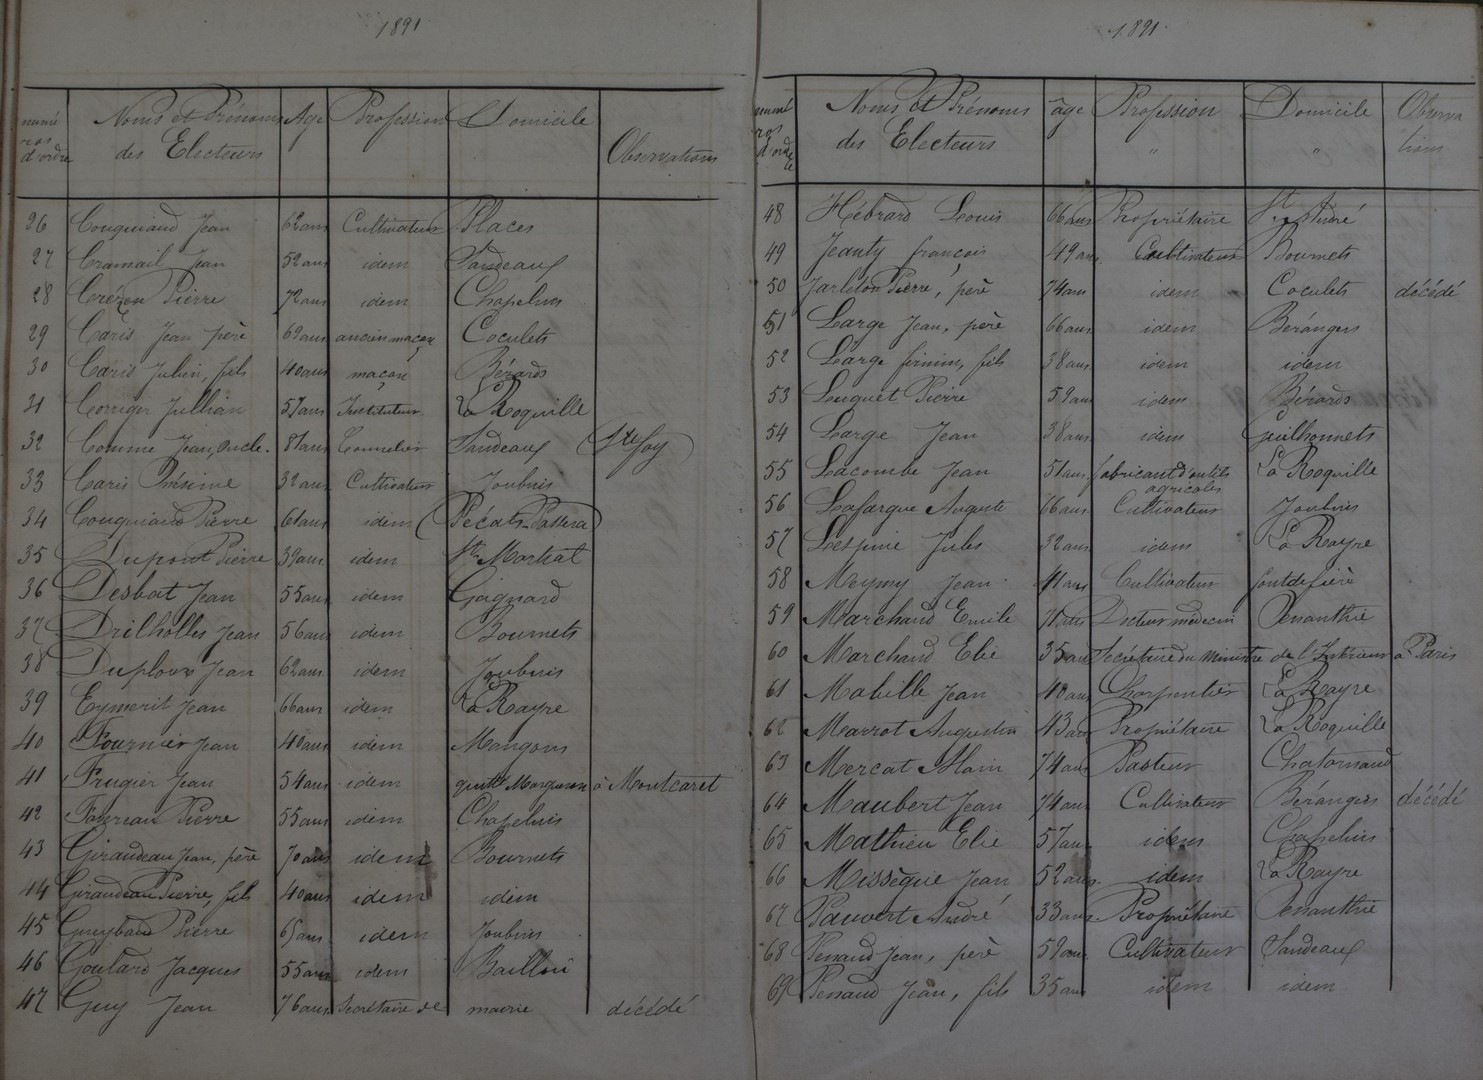 1891
numé
ros
d'ordre
Noms et Prénoms
des Electeurs
Age
Profession
Domicile
Observations
26 Couquiaud Jean 62 ans Cultivateur Places
27 Cramail Jean 52 ans idem Sandeaux
28 Crézen Pierre 72 ans idem Chapelins
29 Caris Jean père 69 ans ancien maçon Coculets
30 Caris Julien, fils 40 ans maçon Bérards
31 Corriger Jullian 57 ans Instituteur La Roquille
32 Comme Jean, oncle. 81 ans Tonnelier Sandeaux Ste foy
33 Caris Onésime 32 ans Cultivateur Joubnis
34 Couquiaud Pierre 61 ans idem (Pécats-Passera)
35 Dupont Pierre 39 ans idem St Martial
36 Desbat Jean 55 ans idem Gaignard
37 Drilholles Jean 56 ans idem Bournets
38 Duploux Jean 62 ans idem Joubnis
39 Eymerit Jean 66 ans idem La Rayre
40 Fournier Jean 40 ans idem Mangons
41 Frugier Jean 54 ans idem à Montcaret
42 Favreau Pierre 55 ans idem Chapelins
43 Giraudeau Jean, père 70 ans idem Bournets
44 Giraudeau Pierre, fils 40 ans idem idem
45 Gueybaud Pierre 65 ans idem Joubnis
46 Goulard Jacques 55 ans idem Baillou
47 Guy Jean 76 ans Secrétaire de mairie décédé
1891
numé
ros
d'ord
re
Noms et Prénoms
des Electeurs
âge
Profession
"
Domicile
"
Observa
tions
48 Hébrard Louis 66 ans Propriétaire St André
49 Jeanty françois 49 ans Cultivateur Bournets
50 Jarleton Pierre, père 74 ans idem Coculets décédé
51 Large Jean, père 66 ans idem Bérangers
52 Large firmin, fils 38 ans idem idem
53 Luquet Pierre 59 ans idem Bérards
54 Large Jean 38 ans idem Guilhonnets
55 Lacombe Jean 51 ans fabricant d'outils La Roquille
agricoles
56 Lafargue Auguste 66 ans Cultivateur Joubnis
57 Lespine Jules 32 ans idem La Rayre
58 Meymy Jean 41 ans Cultivateur fontdefière
59 Marchand Emile 71 ans Docteur médecin Penanthie
60 Marchand Elie 35 ans Secrétaire du Ministre de l'Intérieur à Paris
61 Mabille Jean 40 ans Charpentier La Rayre
62 Marrot Augustin 43 ans Propriétaire La Roquille
63 Mercat Alain 74 ans Pasteur Chatornaud
64 Maubert Jean 74 ans Cultivateur Bérangers décédé
65 Mathieu Elie 57 ans idem Chapelins
66 Missègue Jean 52 ans. idem La Rayre
67 Pauvert André 33 ans Propriétaire Penanthie
68 Penaud Jean, père 59 ans Cultivateur Sandeaux
69 Penaud Jean, fils 35 ans idem idem